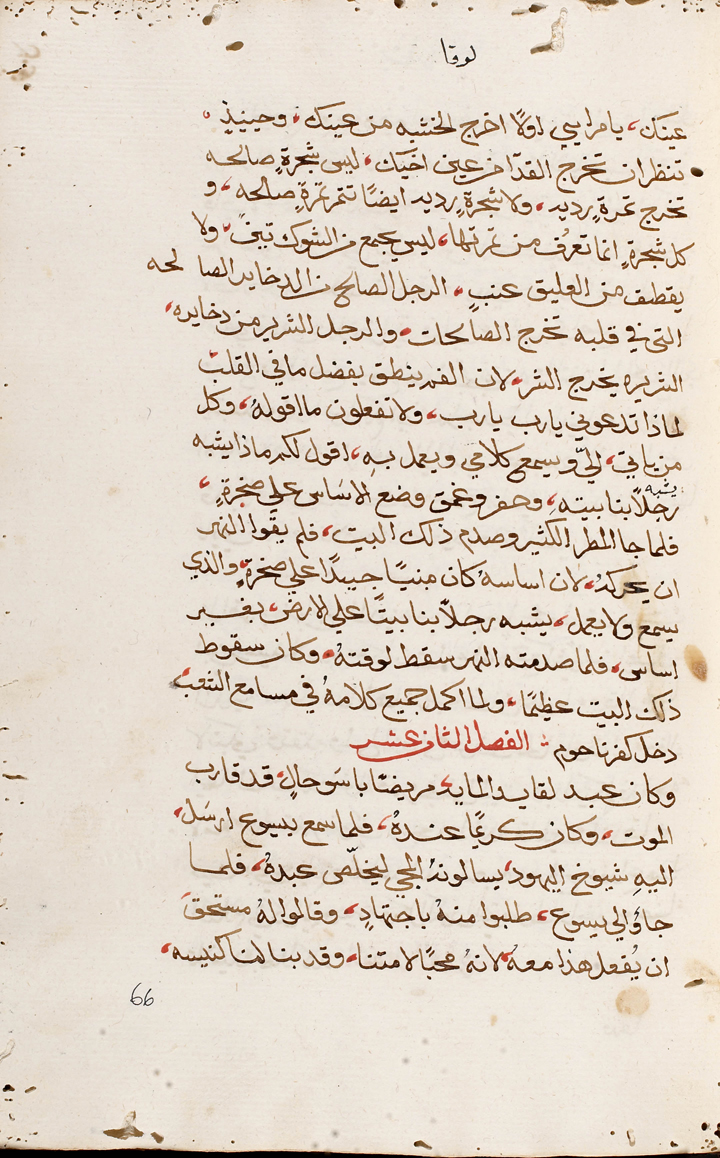 لوقا
عينك، يا مرايي اولًا اخرج الخشبه من عينك، وحينيذٍ
تنظر ان تخرج القدا من عين اخيك، ليس شجرةٍ صالحه
تخرج ثمرةٍ رديه، ولا شجرةٍ رديه ايضًا تثمر ثمرةٍ صالحه، و
كل شجرةٍ انما تعرف من ثمرتها، ليس يجمع من الشوك تين، ولا
يقطف من العليق عنبٍ، الرجل الصالح من الدخاير الصالحه
التي في قلبه تخرج الصالحات، والرجل الشرير من دخايره،
الشريره يخرج الشر، لان الفم ينطق بفضل ما في القلب
لماذا تدعوني يارب يارب، ولا تفعلون ما اقولهُ، وكل
من ياتي، اليّ ويسمع كلامي ويعمل بهِ، اقول لكم ماذا يشبه
يشبه
رجلًا بنا بيته، وحفر وغمق وضع الاساس علي صخرةٍ،
فلما جا المطر الكثير وصدم ذلك البيت، فلم يقوا النهر
ان يحركهُ، لان اساسه كان مبنيًا جيدًا علي صخرةٍ، والذي
يسمع ولا يعمل، يشبه رجلًا بنا بيتًا علي الارض، بغير
اساس، فلما صدمته النهر سقط لوقتهُ، وكان سقوط
ذلك البيت عظيمًا، ولما اكمل جميع كلامهُ في مسامع الشعب
دخل كفرناحوم ؛ الفصل الثاني عشر
وكان عبد لقايد المايه، مريضًا باسو حالٍ، قد قارب
الموت، وكان كريمًا عندهُ، فلما سمع بيسوع ارسل،
اليهِ شيوخ اليهود، يسالونهُ المجي ليخلّص عبدهُ، فلما
جاؤ الي يسوع، طلبوا منهُ باجتهادٍ، وقالوا لهُ مستحق
ان يُفعل هذا معهُ، لانهُ محبًا لامتنا، وقد بنا لنا كنيسه،
66